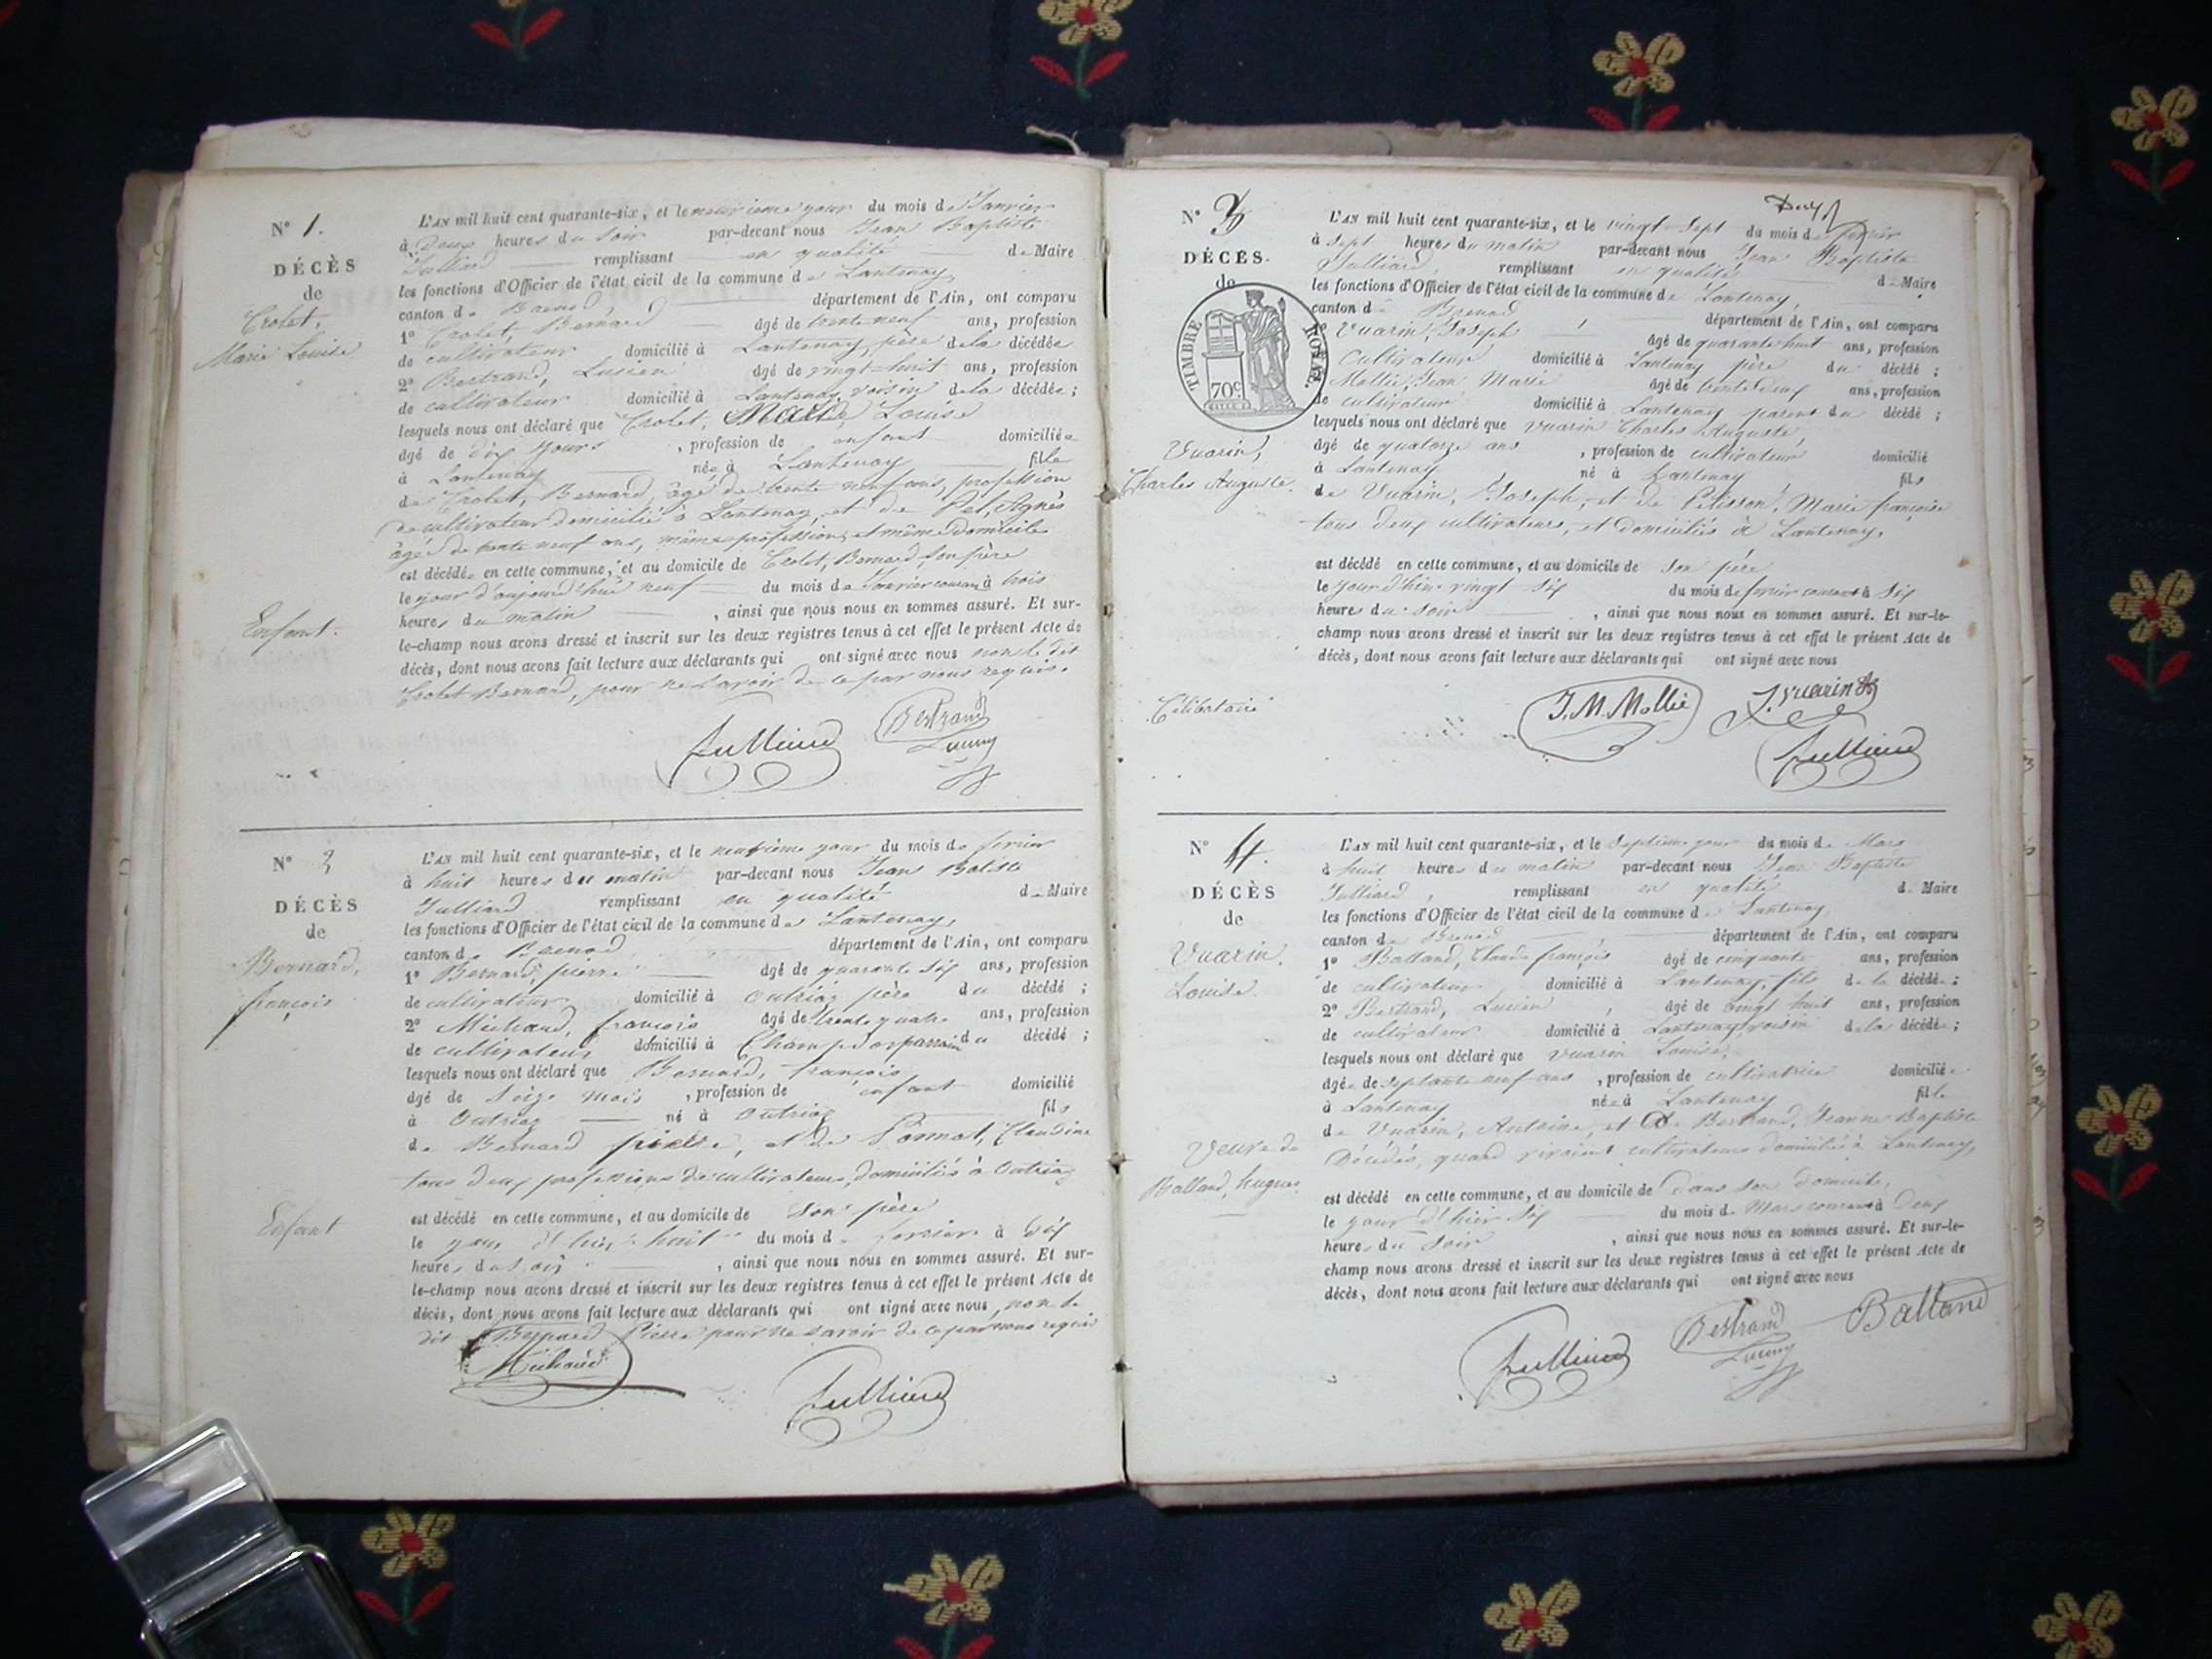 N° 1.
DÉCÈS
de
Crolet,
Marie Louise
Enfant.
L'AN mil huit cent quarante-six, et le neuvieme jour du mois de Janvier
à Deux heures du soir par-devant nous Jean Baptiste
Julliard remplissant en qualité de Maire
les fonctions d'Officier de l'état civil de la commune de Lantenay,
canton de Brenod département de l'Ain, ont comparu
1° Crolet, Bernard âgé de trente neuf ans, profession
de cultivateur domicilié à Lantenay, père de la décédée
2° Bertrand, Lucien âgé de vingt-huit ans, profession
de cultivateur domicilié à Lantenay, voisin de la décédée ;
lesquels nous ont déclaré que Crolet, Marie Louise
âgé de dix jours , profession de enfant domiciliée
à Lantenay née à Lantenay fille
de Crolet, Bernard, âgé de trente neuf ans, profession
de cultivateur domicilié à Lantenay et de Pel, Agnès
âgé de trente neuf ans, même profession, et même domicile
est décédée en cette commune, et au domicile de Crolet, Bernard, son père
le jour d'aujourd'hui neuf du mois de Janvier courant à trois
heures du matin , ainsi que nous nous en sommes assuré. Et sur-
le-champ nous avons dressé et inscrit sur les deux registres tenus à cet effet le présent Acte de
décès, dont nous avons fait lecture aux déclarants qui ont signé avec nous non le dit
Crolet Bernard, pour ne savoir de ce par nous requis.
Julliard Bertrand
Lucien
N° 2
DÉCÈS
de
Bernard,
françois
Enfant
L'AN mil huit cent quarante-six, et le neuvième jour du mois de fevrier
à huit heures du matin par-devant nous Jean Batiste
Julliard remplissant en qualité de Maire
les fonctions d'Officier de l'état civil de la commune de Lantenay,
canton de Brenod département de l'Ain, ont comparu
1° Bernard, pierre âgé de quarante six ans, profession
de cultivateur domicilié à Outriaz père du décédé ;
2° Michaud, françois âgé de trente quatre ans, profession
de cultivateur domicilié à Champdor parrain du décédé ;
lesquels nous ont déclaré que Bernard, françois
âgé de seize mois , profession de enfant domicilié
à Outriaz né à Outriaz fils
de Bernard pierre, et de Ponnat, Claudine
tous deux professions de cultivateurs, domiciliés à Outriaz
est décédé en cette commune, et au domicile de son père
le jour d'hier huit du mois de fevrier à six
heures du soir , ainsi que nous nous en sommes assuré. Et sur-
le-champ nous avons dressé et inscrit sur les deux registres tenus à cet effet le présent Acte de
décès, dont nous avons fait lecture aux déclarants qui ont signé avec nous, non le
dit Bernard Pierre pour ne savoir de ce par nous requis
Michaud
Julliard
Deux
N° 3
DÉCÈS.
de
TIMBRE ROYAL.
70c.
Vuarin,
Charles Auguste.
Célibataire
L'AN mil huit cent quarante-six, et le vingt-sept du mois de fevrier
à sept heures du matin par-devant nous Jean Baptiste
Julliard, remplissant en qualité de Maire
les fonctions d'Officier de l'état civil de la commune de Lantenay,
canton de Brenod département de l'Ain, ont comparu
1° Vuarin, Joseph âgé de quarante huit ans, profession
cultivateur domicilié à Lantenay père du décédé ;
Mollié, Jean Marie âgé de trente deux ans, profession
de cultivateur domicilié à Lantenay parent du décédé ;
lesquels nous ont déclaré que Vuarin Charles Auguste,
âgé de quatorze ans , profession de cultivateur domicilié
à Lantenay né à Lantenay fils
de Vuarin, Joseph, et de Pelisson, Marie françoise
tous deux cultivateurs, et domiciliés à Lantenay.
est décédé en cette commune, et au domicile de son père
le jour d'hier vingt six du mois de fevrier courant à six
heures du soir , ainsi que nous nous en sommes assuré. Et sur-le-
champ nous avons dressé et inscrit sur les deux registres tenus à cet effet le présent Acte de
décès, dont nous avons fait lecture aux déclarants qui ont signé avec nous
J. M. Mollié J. Vuarin
Julliard
N° 4.
DÉCÈS
de
Vuarin.
Louise.
Veuve de
Balland, hugues.
L'AN mil huit cent quarante-six, et le septieme jour du mois de Mars
à huit heures du matin par-devant nous Jean Baptiste
Julliard, remplissant en qualité de Maire
les fonctions d'Officier de l'état civil de la commune de Lantenay
canton de Brenod département de l'Ain, ont comparu
1° Balland, Claude françois âgé de cinquante ans, profession
de cultivateur domicilié à Lantenay, fils de la décédée ;
2° Bertrand, Lucien, âgé de vingt huit ans, profession
de cultivateur domicilié à Lantenay voisin de la décédée ;
lesquels nous ont déclaré que Vuarin Louise,
âgée de septante neuf ans , profession de cultivatrice domiciliée
à Lantenay née à Lantenay fille
de Vuarin, Antoine, et de Bertrand, Jeanne Baptiste
Décédés, quand vivaient cultivateurs domiciliés à Lantenay,
est décédé en cette commune, et au domicile de dans son domicile,
le jour d'hier six du mois de Mars courant à Deux
heures du soir , ainsi que nous nous en sommes assuré. Et sur-le-
champ nous avons dressé et inscrit sur les deux registres tenus à cet effet le présent Acte de
décès, dont nous avons fait lecture aux déclarants qui ont signé avec nous
Julliard Bertrand Balland
Lucien